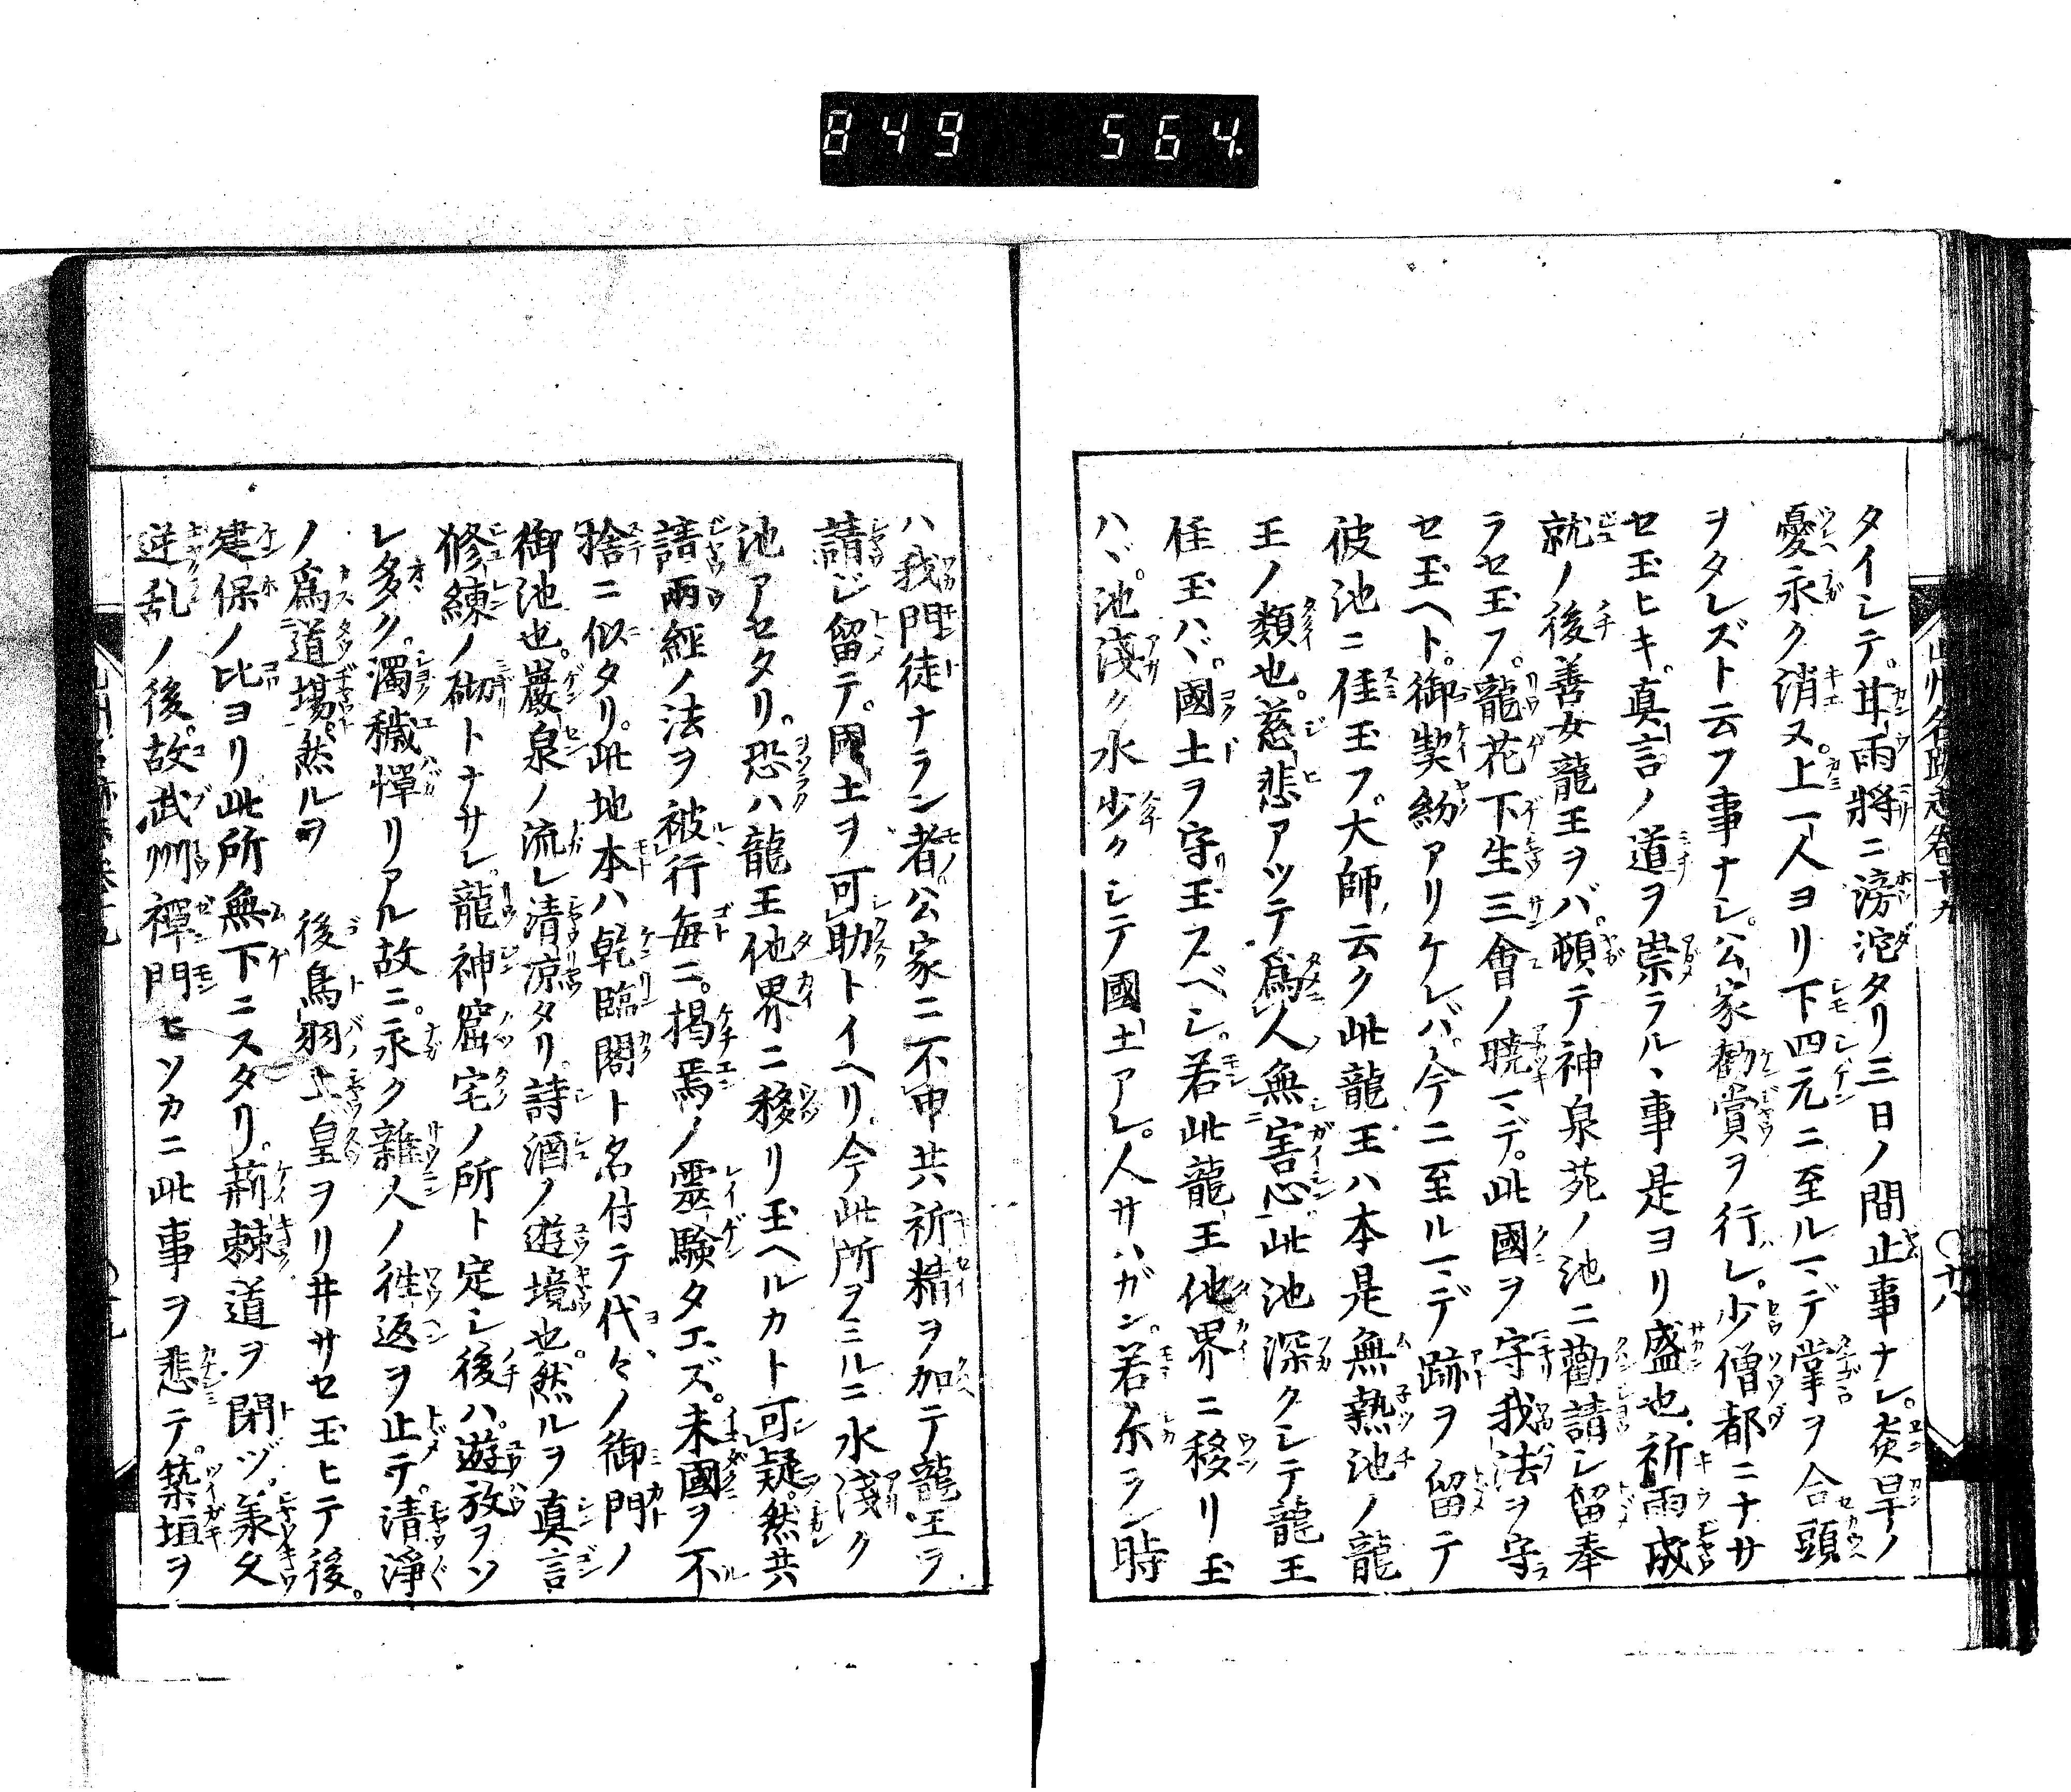 849 564
タイシテ。甘雨將ニ滂沱タリ三日ノ間止事ナシ。炎旱ノ
憂永ク消ヌ。上一人ヨリ下四元ニ至ルマデ掌ヲ合頭
ヲタレズト云フ事ナシ。公家勸賞ヲ行レ。少僧都ニナサ
セ玉ヒキ。真言ノ道ヲ崇ラルヽ事是ヨリ盛也。祈雨成
就ノ後善女龍王ヲバ。頓テ神泉苑ノ池ニ勸請シ留奉
ラセ玉フ。龍花下生三會ノ曉マデ。此國ヲ守我法ヲ守
セ玉ヘト。御契約アリケレバ。今ニ至ルマデ跡ヲ留テ
彼池ニ住玉フ。大師ノ云ク此龍王ハ本是無熱池ノ龍
王ノ類也。慈悲アツテ爲人無害心此池深クシテ龍王
住玉ハヾ。國土ヲ守玉スベシ。若此龍王他界ニ移リ玉
ハヾ。池淺ク水少クシテ國土アレ。人サハガン。若尓ラン時
ハ我門徒ナラン者公家ニ不申共祈精ヲ加テ龍王ラ
請ジ留テ。國土ヲ可助トイヘリ。今此所ヲミルニ水淺ク
池アセタリ。恐ハ龍王他界ニ移リ玉ヘルカト可疑。然共
請雨經ノ法ヲ被行毎ニ。掲焉ノ靈驗タエズ。未國ヲ不
捨ニ似タリ。此地本ハ乾臨閣ト名付テ代々ノ御門ノ
御池也。巖泉ノ流レ清凉タリ。詩酒ノ遊境也。然ルヲ真言
修練ノ砌トナサレ。龍神窟宅ノ所ト定シ後ハ。遊放ヲソ
レ多ク。濁穢憚リアル故ニ。永ク雜人ノ徃返ヲ止テ。清淨
ノ爲道場。然ルヲ 後鳥羽上皇ヲリ井サセ玉ヒテ後。
建保ノ比ヨリ此所無下ニスタリ。荊棘道ヲ閉ヅ。承久
逆乱ノ後。故武州禪門ヒソカニ此事ヲ悲テ。築垣ヲ